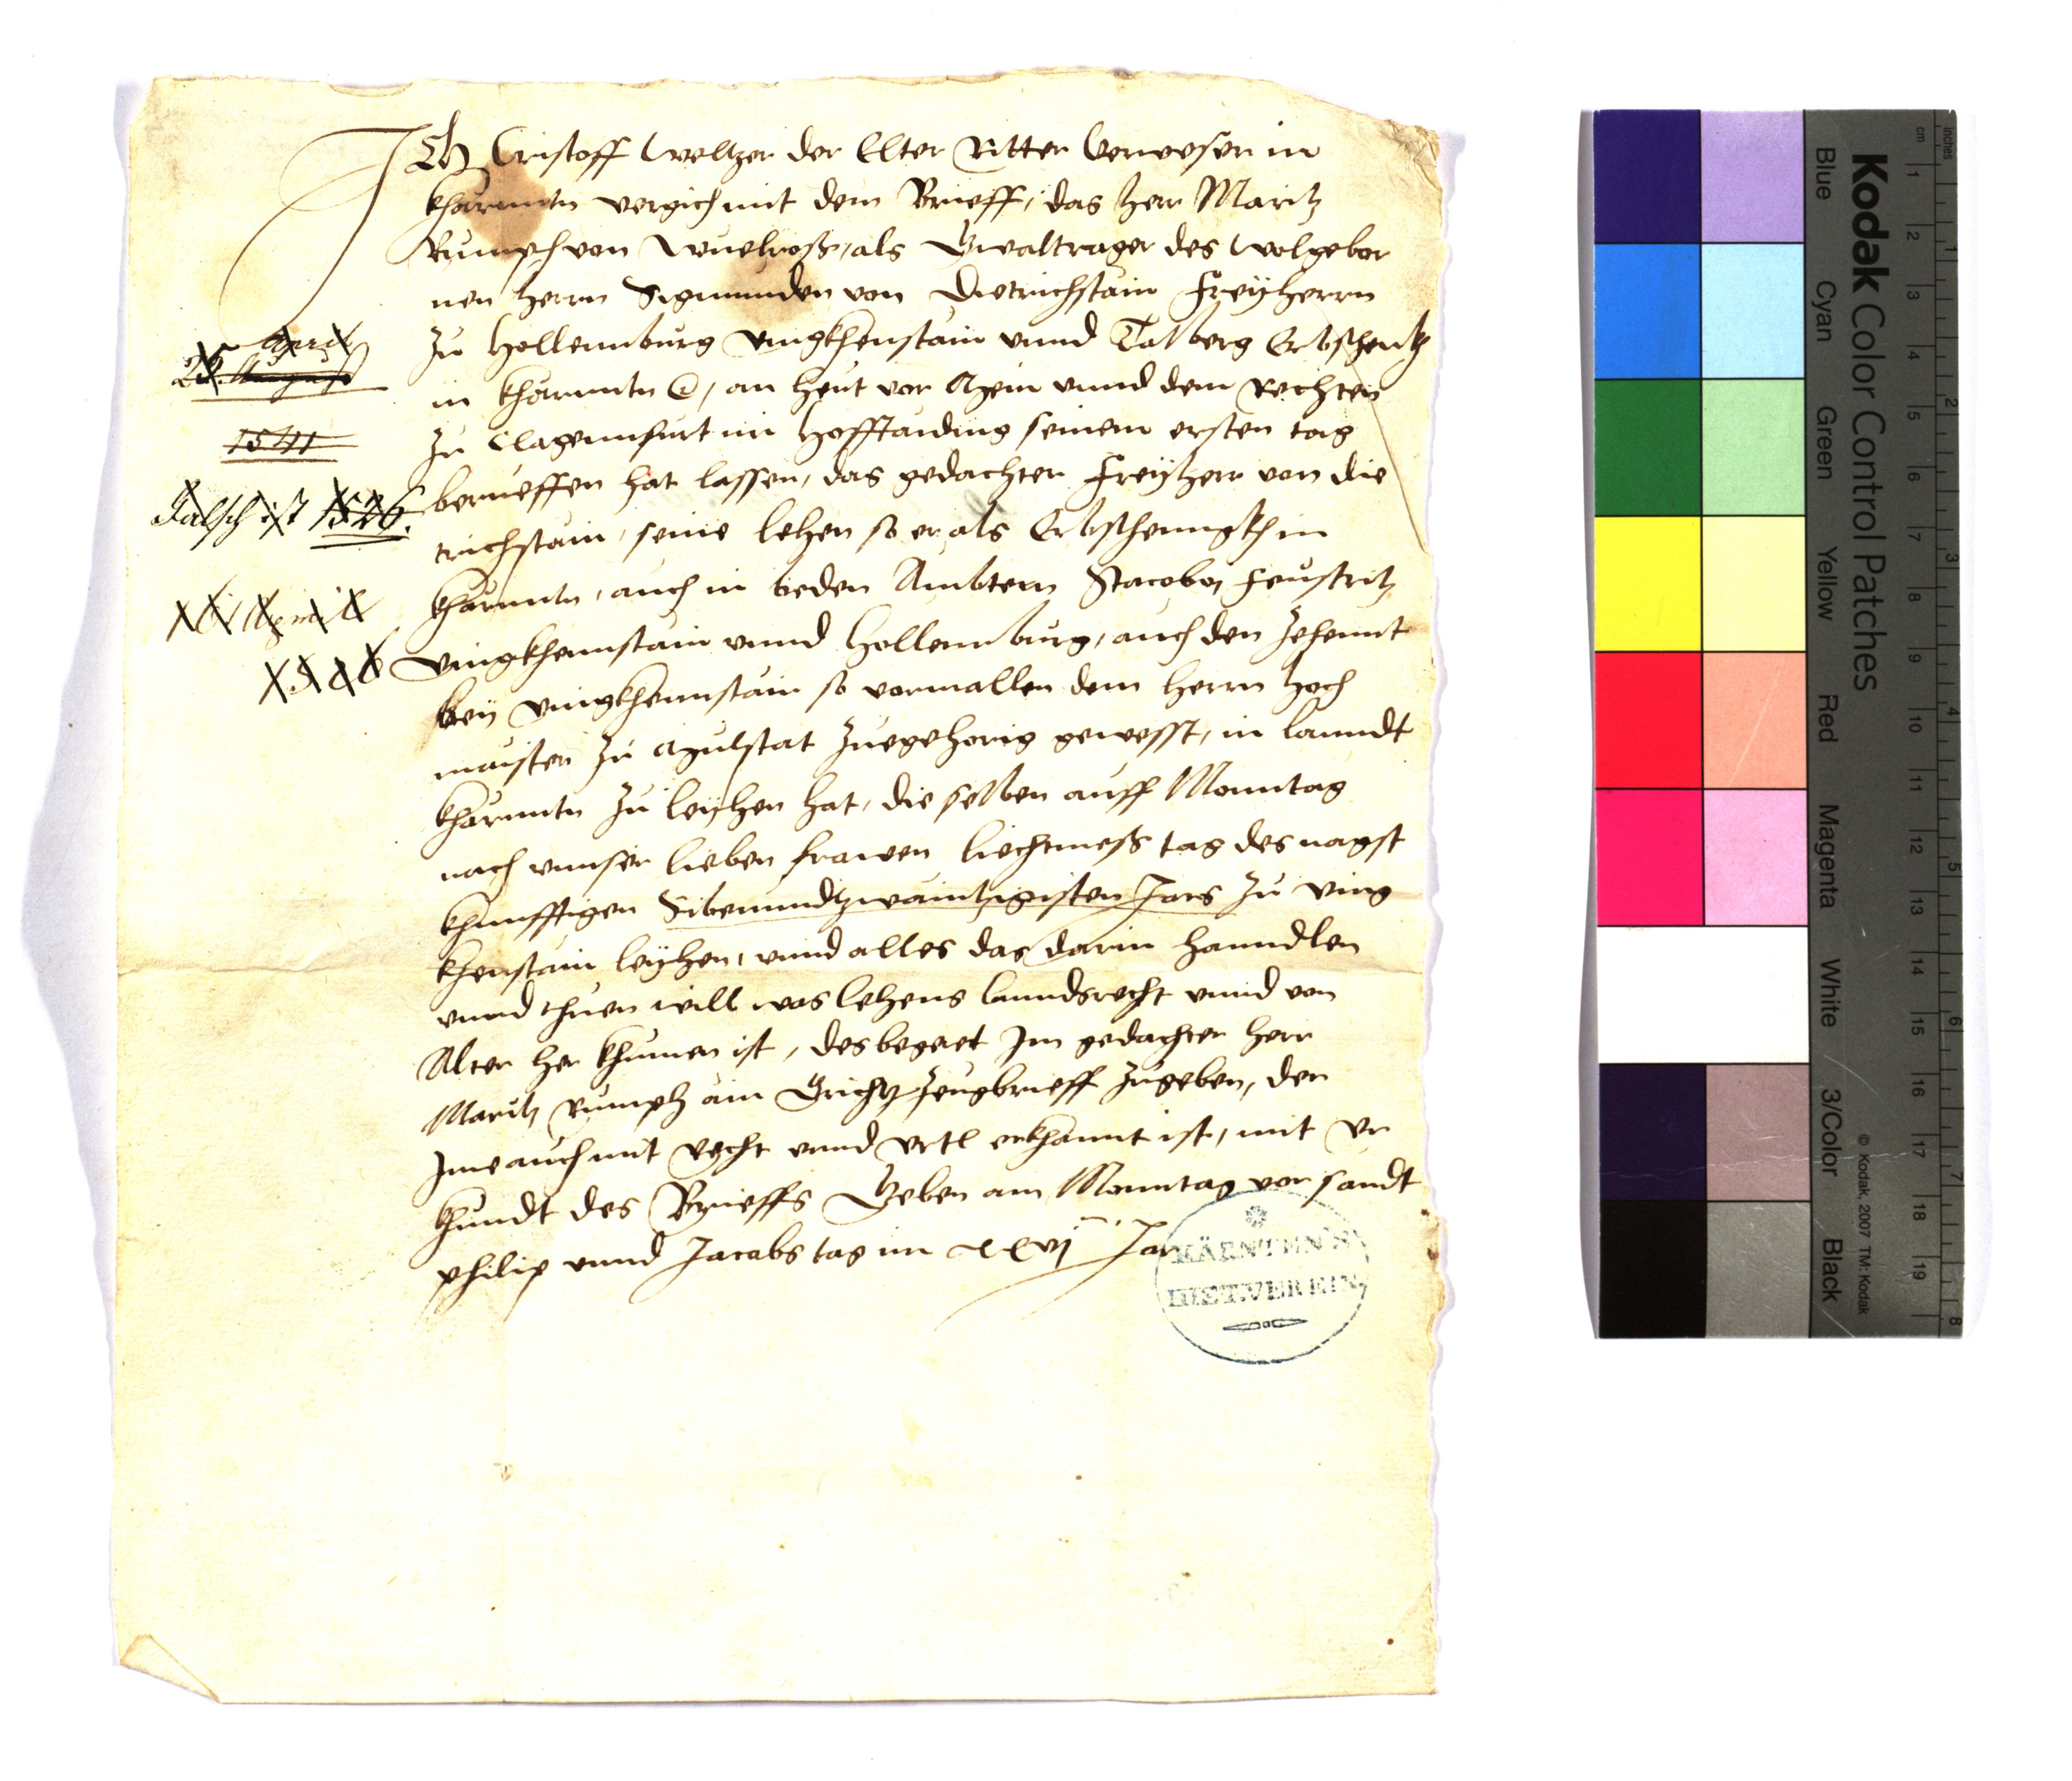 Ich Cristoff Weltzer der Elter Ritter Verweser in
kharnntn vergich mit dem Brieff, das herr Maritz
Rumph von Wuelroß, als Gwaltrager des Wolgebor
nen herrn Sigmunden von Dietrichstain Freyherrn
zu Hollennburg vingkhenstain vnnd Talberg Erbschenkh
in kharnntn, an heut vor mein vnnd dem Rechten
zu Clagennfurt im Hofftaiding seinem ersten tag
berueffen hat lassen, das gedachter Freyherr von die
trichstain, seine lehen so er als Erbschenngkh in
kharnntn, auch in beden Ambtern Feustritz
vingkhennstain vnnd Hollennburg, auch den Zehennt
bey vingkhennstain so vormallen dem herrn Hoch
maister zu Mulstat zuegehorig gewesst, in lanndt
kharnntn zu leyhen hat, die selben auff Monntag
nach vnnser lieben frawen liechtmeß tag des nagst
khunfftigen Sibenundtzwaintzigisten Jars zu ving
khenstain leyhen, vnnd alles das darin hanndlen
vnnd thuen will was lehens lanndsrecht vnnd von
Alter her khumen ist, des begeret Im gedachter herr
Maritz Rumph ain Grichtz Zeugbrieff zugeben, der
Ime auch mit Recht vnnd vrtl erkhannt ist, mit Vr
khundt des Brieffs Geben am Monntag vor sandt
philip vnnd Jacobs tag im xxvj Jar
April
25. August
1541
Falsch ist 1526.
April
1526
KÄRNTEN'S
HIST.VEREIN
Kodak Color Control Patches
Blue Cyan Green Yellow Red Magenta White 3/Color Black
© Kodak, 2007 TM: Kodak
cm 1 2 3 4 5 6 7 8 9 10 11 12 13 14 15 16 17 18 19
inches 1 2 3 4 5 6 7 8